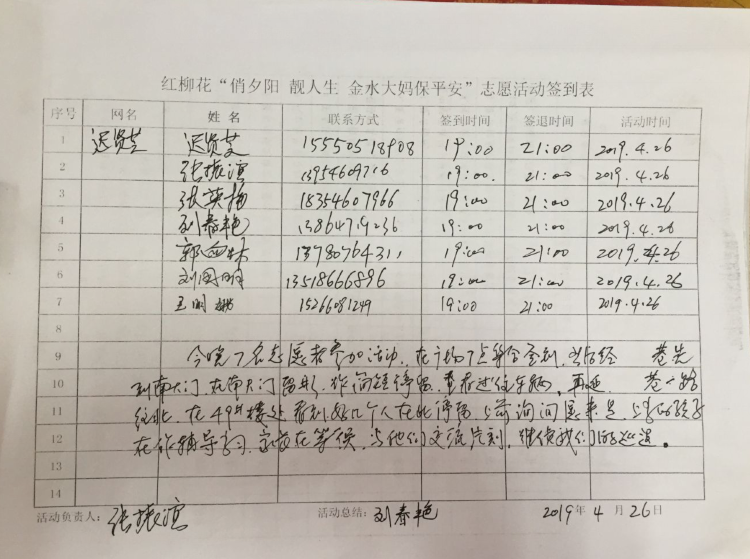 红柳花“俏夕阳 靓人生 金水大妈保平安”志愿活动签到表
序号 网名 姓 名 联系方式 签到时间 签退时间 活动时间
1 迟贤芝 迟贤芝 15550518908 19:00 21:00 2019.4.26
2 张振滨 13954609716 19:00. 21:00 2019.4.26
3 张英梅 18354607966 19:00 21:00 2019.4.26
4 刘春艳 13864719236 19:00 21:00 2019.4.26
5 郭 林 13780764311 19:00 21:00 2019.4.26
6 刘国明 13518666896 19:00 21:00 2019.4.26
7 王明 15266081249 19:00 21:00 2019.4.26
8
9 今晚7名志愿者参加活动,在广场7点集合签到,巷先
10 到南大门,在南大门留影,作简短停留,查看过往车辆,再
11 往北,在49#楼处看到好几个人在此停留,上前询问
12 在作辅导学习,家长在等候,与他们交流片刻,继续我们的巡逻。
13
14
活动负责人: 张振滨 活动总结: 刘春艳 2019年 4 月 26日